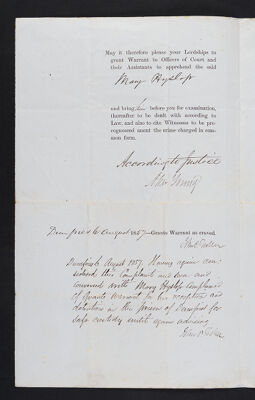 May it therefore please your Lordships to
grant Warrant to Officers of Court and
their Assistants to apprehend the said
Mary Hyslop
and bring her before you for examination,
thereafter to be dealt with according to
Law, and also to cite Witnesses to be pre-
cognosced anent the crime charged in com-
mon form.
According to Justice
Dumfries 6 August 1857—Grants Warrant as craved.
Dumfries 6 August 1857. Having again con-
sidered this Complaint and seen and
conversed with Mary Hyslop complained
of grants warrant for her reception and
detention in the prison of Dumfries for
safe custody until again advising